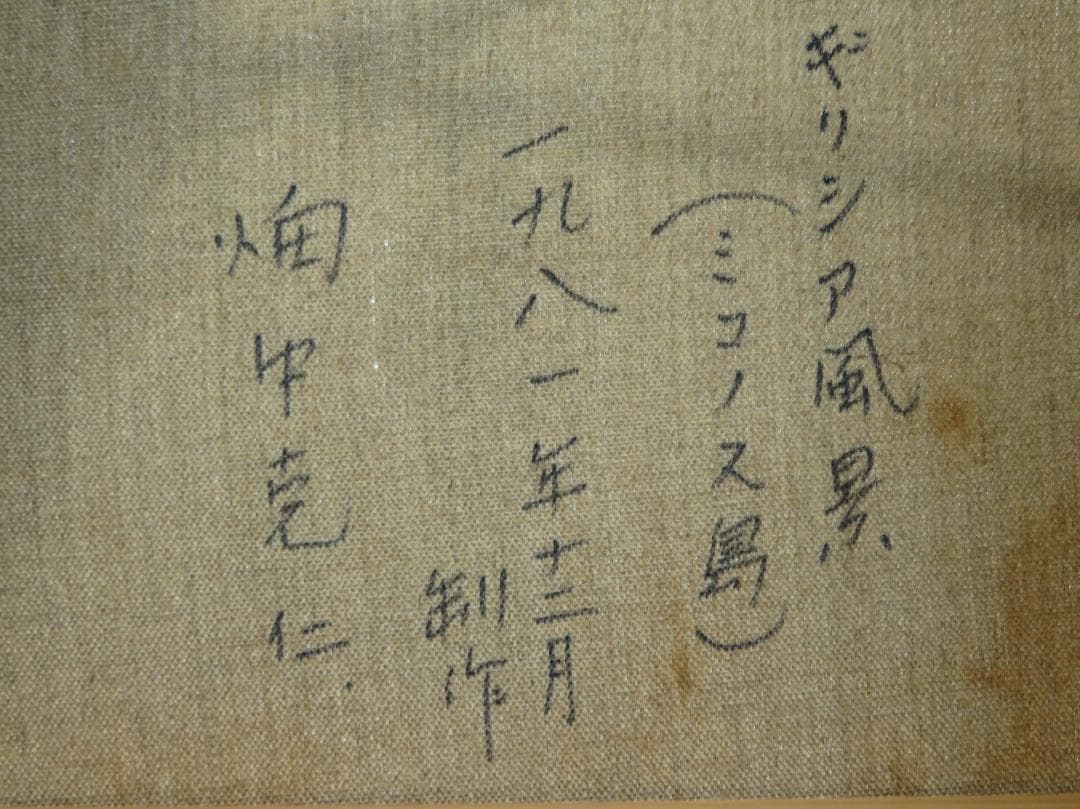 ギリシア風景
(ミコノス島)
一九八一年十二月
制作
畑中克仁